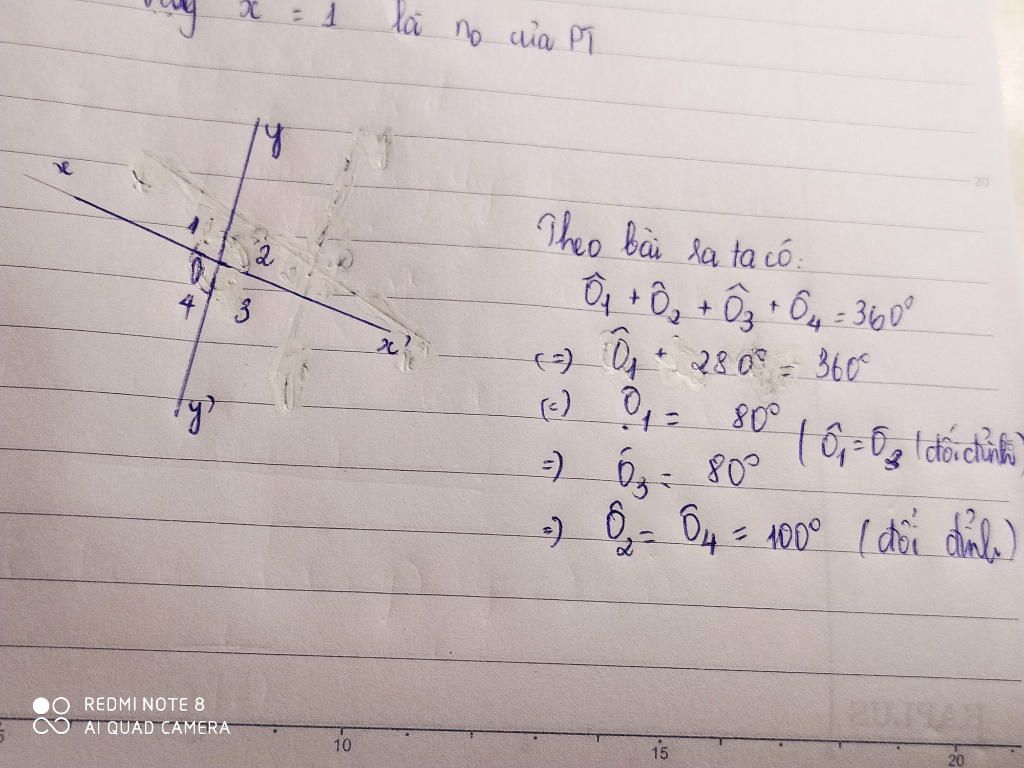 x = 1 là no của PT
y
x
1
2
O
4
3
x'
y'
Theo bài ra ta có:
Ô1 + Ô2 + Ô3 + Ô4 = 360°
(=) Ô1 + 280° = 360°
(=) Ô1 = 80° (Ô1 = Ô3 (đối đỉnh)
=) Ô3 = 80°
=) Ô2 = Ô4 = 100° (đối đỉnh)
20
REDMI NOTE 8
AI QUAD CAMERA
5 10 15 20